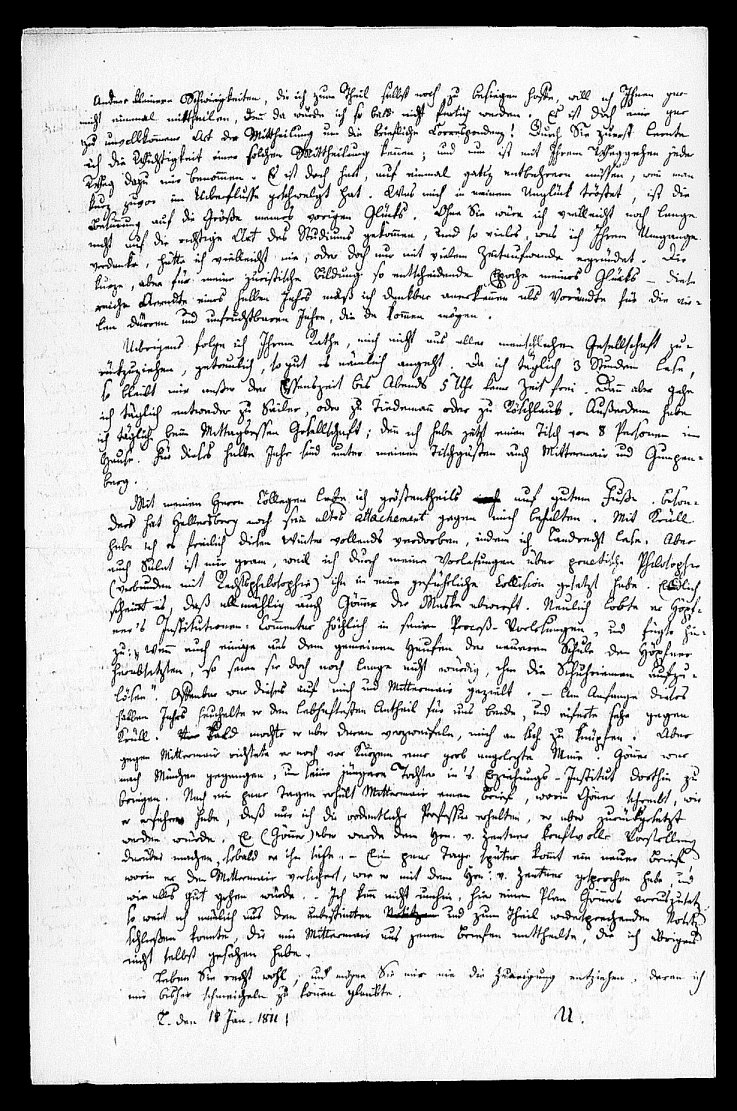 Andere kleinere Schwierigkeiten, die ich zum Theil selbst noch zu besiegen hoffe, will ich Ihnen gar
nicht einmal mittheilen, denn da würde ich so bald nicht fertig werden. Es ist doch eine gar
zu unvollkommene Art der Mittheilung um die briefliche Correspondenz! Durch Sie zuerst lernte
ich die Wichtigkeit einer solchen Mittheilung kennen; und nun ist mit Ihrem Weggehen jeder
Weg dazu mir benommen. Es ist doch hart, auf einmal ganz entbehren müssen, worin man
kurz zuvor im Ueberflusse geschwelgt hat. Was mich in meinem Unglück tröstet, ist die
auf die Größe meines vorigen Glücks. Ohne Sie wäre ich vielleicht noch lange
nicht auf die richtige Art des Studiums gekommen, und so vieles, was ich Ihrem Umgange
verdanke, hätte ich vielleicht nie, oder doch nur mit vielem Zeitaufwande ergründet. Die
kurze, aber für meine juristische Bildung so entscheidende Epoche meines Glücks – diese
reiche Aerndte eines halben Jahrs muß ich dankbar anerkennen als Vorärndte für die vie-
len dürren und unfruchtbaren Jahre, die da kommen mögen.
Uebrigens folge ich Ihrem Rathe, mich nicht aus aller menschlichen Gesellschaft zu-
rückzuziehen, getreulich, so gut es nämlich angeht. Da ich täglich 3 Stunden lese,
so bleibt mir außer der Essenszeit bis Abends 5 Uhr keine Zeit frei. Dann aber gehe
ich täglich entweder zu Sailer, oder zu Tiedemann oder zu Röschlaub. Außerdem habe
ich täglich beim Mittagessen Gesellschaft; denn ich habe jetzt einen Tisch von 8 Personen im
Hause. Für dieses halbe Jahr sind unter meinen Tischgästen auch Mittermair und Gumpen-
berg.
Mit meinen Herrn Collegen lebe ich größtentheils auf gutem Fuße. Beson-
ders hat Hellersberg noch sein altes attachement gegen mich behalten. Mit Krüll
habe ich es freilich diesen Winter vollends verdorben, indem ich Landrecht lese. Aber
auch Salat ist mir gram, weil ich durch meine Vorlesungen über practische Philosophie
(verbunden mit Rechtsphilosophie) ihn in eine gefährliche Collision gesetzt habe. Endlich
scheint es, daß allmählig auch Gönner die Maske abwerfe. Neulich lobte er Höpf-
ner's Institutionen-Commentar höchlich in seinen Proceß-Vorlesungen, und fügte hin-
zu: „Wenn auch einige aus dem gemeinen Haufen der neueren Schule den Höpfner
herabsetzten, so seien sie doch noch lange nicht würdig, ihm die Schuhriemen aufzu-
lösen". Offenbar war dieses auf mich und Mittermair gezielt. – Am Anfange dieses
halben Jahrs heuchelte er den lebhaftesten Antheil für uns beide, und eiferte sehr gegen
Krüll. Bald mochte er aber daran verzweifeln, mich an sich zu knüpfen. Aber
gegen Mittermair richtete er noch vor Kurzem eine grob angelegte Mine. Gönner war
nach München gegangen, um seine jüngere Tochter in's Erziehungs-Institut dorthin zu
bringen. Nach ein paar Tagen erhält Mittermair einen Brief, worin Gönner schreibt, wie
er erfahren habe, daß nur ich die ordentliche Professur erhalten, er aber zurückgesetzt
werden würde. Er (Gönner) aber werde dem Hrn. v. Zentner kraftvolle Vorstellung
darüber machen, sobald er ihn sehe. – Ein paar Tage später kommt ein neuer Brief,
worin er den Mittermair versichert, wie er mit dem Hrn. v. Zentner gesprochen habe, und
wie alles gut gehen würde. – Ich kann nicht umhin, hier einen Plan Gönners vorauszusetzen,
so weit ich nämlich aus den unbestimmten und zum Theil widersprechenden Notizen
schließen konnte, die mir Mittermair aus jenen Briefen mittheilte, die ich übrigens
nicht selbst gesehen habe.
Leben Sie recht wohl; und mögen Sie mir nie die Zuneigung entziehen, deren ich
mir bisher schmeicheln zu können glaubte.
L. den 18 Jan. 1811
U.